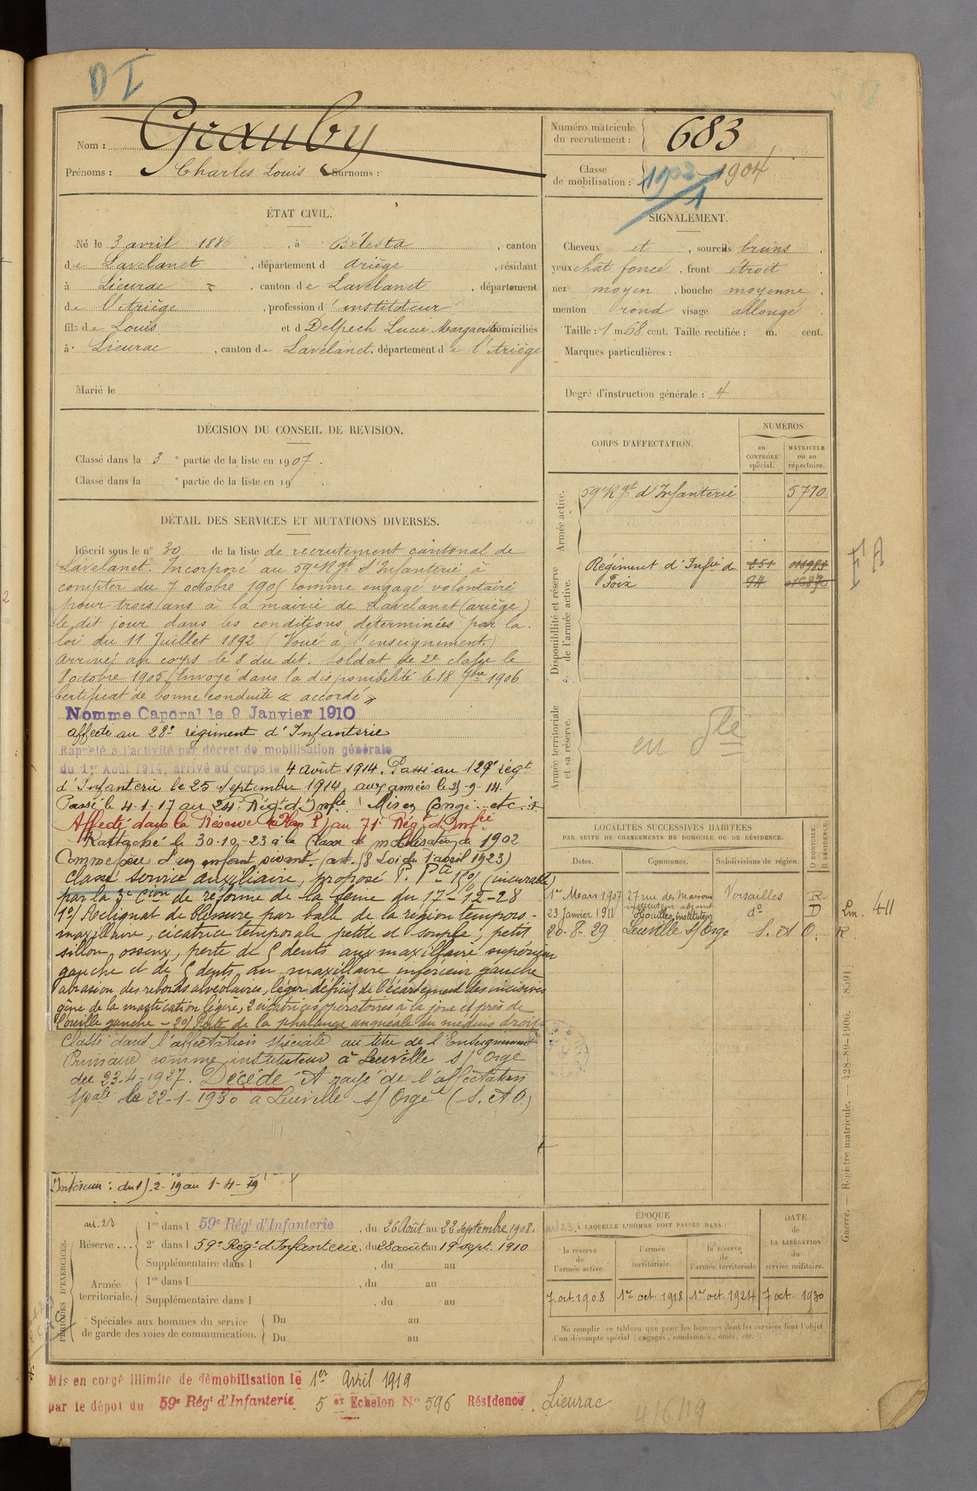 D I
Nom : Grauby
Prénoms : Charles Louis Surnoms :
Numéro matricule du recrutement : 683
Classe de mobilisation : 1902 1904
1
ÉTAT CIVIL.
Né le 3 avril 1886, à Bélesta, canton
de Lavelanet, département d ariège, résidant
à Lieurac, canton de Lavelanet, département
de l'Ariège, profession d'instituteur
fils de Louis et d Delpech Lucie Marguerite domiciliés
à Lieurac, canton de Lavelanet, département de l'Ariège
Marié le
SIGNALEMENT.
Cheveux et, sourcils bruns.
yeux chat foncé, front étroit
nez moyen, bouche moyenne
menton rond visage allongé
Taille : 1 m. 68 cent. Taille rectifiée : m. cent.
Marques particulières :
Degré d'instruction générale : 4
DÉCISION DU CONSEIL DE REVISION.
Classé dans la 3e partie de la liste en 1907.
Classé dans la e partie de la liste en 19
DÉTAIL DES SERVICES ET MUTATIONS DIVERSES.
Inscrit sous le n° 30 de la liste de recrutement cantonal de
Lavelanet. Incorporé au 59e Rgt d'Infanterie à
compter du 7 octobre 1905 comme engagé volontaire
pour trois ans à la mairie de Lavelanet (ariège)
le dit jour dans les conditions déterminées par la
loi du 11 Juillet 1892 (Voué à l'enseignement.)
Arrivé au corps le 8 du dit. Soldat de 2e classe le
8 octobre 1905. Envoyé dans la disponibilité le 18 7bre 1906
Certificat de bonne conduite "accordé"
Nommé Caporal le 9 Janvier 1910
affecté au 28e régiment d'Infanterie
Rappelé à l'activité par décret de mobilisation générale
du 1er Août 1914, arrivé au corps le 4 août 1914. Passé au 129e régt
d'Infanterie le 25 septembre 1914, aux armées le 25-9-14.
Passé le 4-1-17 au 24e Rég. d'Infie Mis en Congé etc
Affecté dans la Réserve (Plan P) au 71e Régt d'Infie
Rattaché le 30-10-23 à la Classe de mobilisation de 1902
Comme père d'un enfant vivant (art. 58 Loi du 1er avril 1923)
Classé Service auxiliaire, proposé P. Pte 10% (incurable)
par la 3e Cion de réforme de la Seine du 17-12-28
1°/ Reliquat de blessure par balle de la région temporo-
maxillaire, cicatrice temporale petite et souple, petit
sillon osseux, perte de 5 dents aux maxillaire supérieur
gauche et de 5 dents du maxillaire inférieur gauche
abrasion des rebords alvéolaires, léger déficit de l'écartement des incisives
gêne de la mastication légère, 2 cicatrices opératoires à la joue et près de
l'oreille gauche - 2°/ Perte de la phalange unguéale du médius droit
Classé dans l'affectation spéciale au titre de l'Enseignement
Primaire comme instituteur à Leuville s/ Orge
du 23-4-1927. Décédé. A rayé de l'affectation
spale le 22-1-1930 à Leuville s/ Orge (S. et O.)
Intérieur : du 15-2-19 au 1-4-19
CORPS D'AFFECTATION.
NUMÉROS
au CONTRÔLE spécial.
MATRICULE ou au répertoire.
Armée active.
59e Rgt d'Infanterie 5710
Disponibilité et réserve de l'armée active.
Régiment d'Infie de Foix
Armée territoriale et sa réserve.
en Dle
LOCALITÉS SUCCESSIVES HABITÉES
PAR SUITE DE CHANGEMENTS DE DOMICILE OU DE RÉSIDENCE.
Dates. Communes. Subdivisions de région. D DOMICILE. R RÉSIDENCE.
1er Mars 1907 27 rue de Versailles R
23 Janvier 1911 Houilles, instituteur do D
20-8-29 Leuville s/ Orge S. et O. R.
Lin. 411
PÉRIODES D'EXERCICES.
art. 23
Réserve... 1re dans l 59e Régt d'Infanterie, du 26 Août au 22 septembre 1908.
2e dans l 59e Régt d'Infanterie, du 28 août au 19 sept. 1910
Supplémentaire dans l , du au
Armée territoriale. 1re dans l , du au
Supplémentaire dans l , du au
Spéciales aux hommes du service de garde des voies de communication. Du au
Du au
art 23
ÉPOQUE
À LAQUELLE L'HOMME DOIT PASSER DANS :
la réserve de l'armée active.
l'armée territoriale.
la réserve de l'armée territoriale
DATE de LA LIBÉRATION du service militaire.
7 oct. 1908 1er oct. 1918 1er oct. 1924 7 oct. 1930
Ne remplir ce tableau que pour les hommes dont les services font l'objet
d'un décompte spécial (engagés, condamnés, omis, etc.
Guerre. — Registre matricule. 428-89-1906. [8591]
Mis en congé illimité de démobilisation le 1er Avril 1919
par le dépôt du 59e Régt d'Infanterie 5e Echelon No 596 Résidence Lieurac
4/6/19